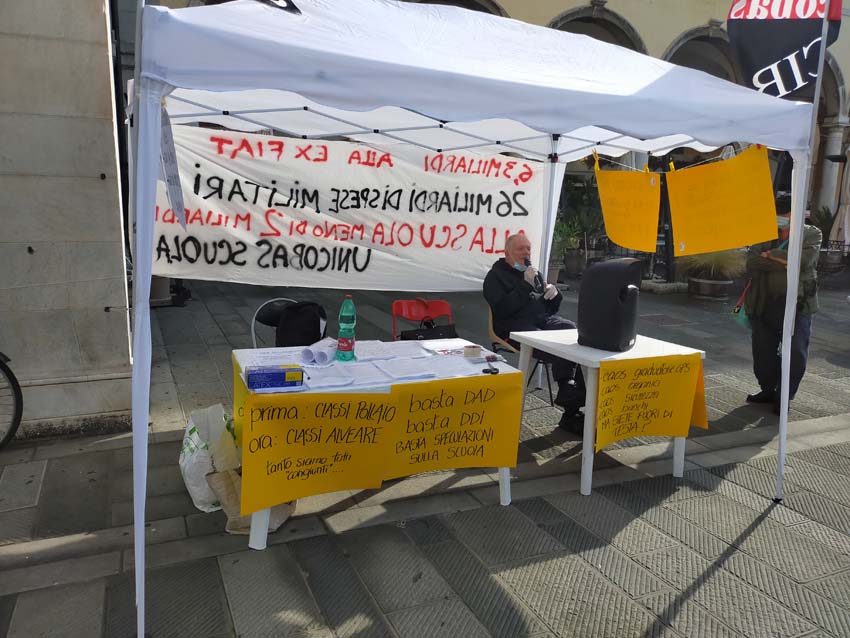 6,3 MILIARDI ALLA EX FIAT
26 MILIARDI DI SPESE MILITARI
ALLA SCUOLA MENO DI 2 MILIARDI
UNICOBAS SCUOLA
cobas
CIB
prima: CLASSI POLLAIO
ora: CLASSI ALVEARE
tanto siamo tutti
"congiunti"....
basta DAD
basta DDI
BASTA SPECULAZIONI
SULLA SCUOLA
caos graduatorie GPS
caos organici
caos sicurezza
caos banchi
MA SIETE FUORI DI
TESTA?